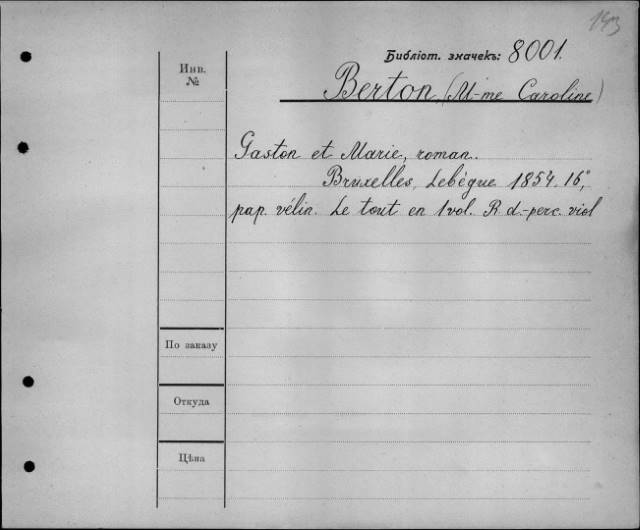 193
Библіот. значекъ: 8001.
Инв.
№
Berton, (M-me Caroline)
Gaston et Marie, roman.
Bruxelles, Lebègue 1854. 16°,
pap. vélin. Le tout en 1 vol. R d.-perc. viol
По заказу
Откуда
Цѣна